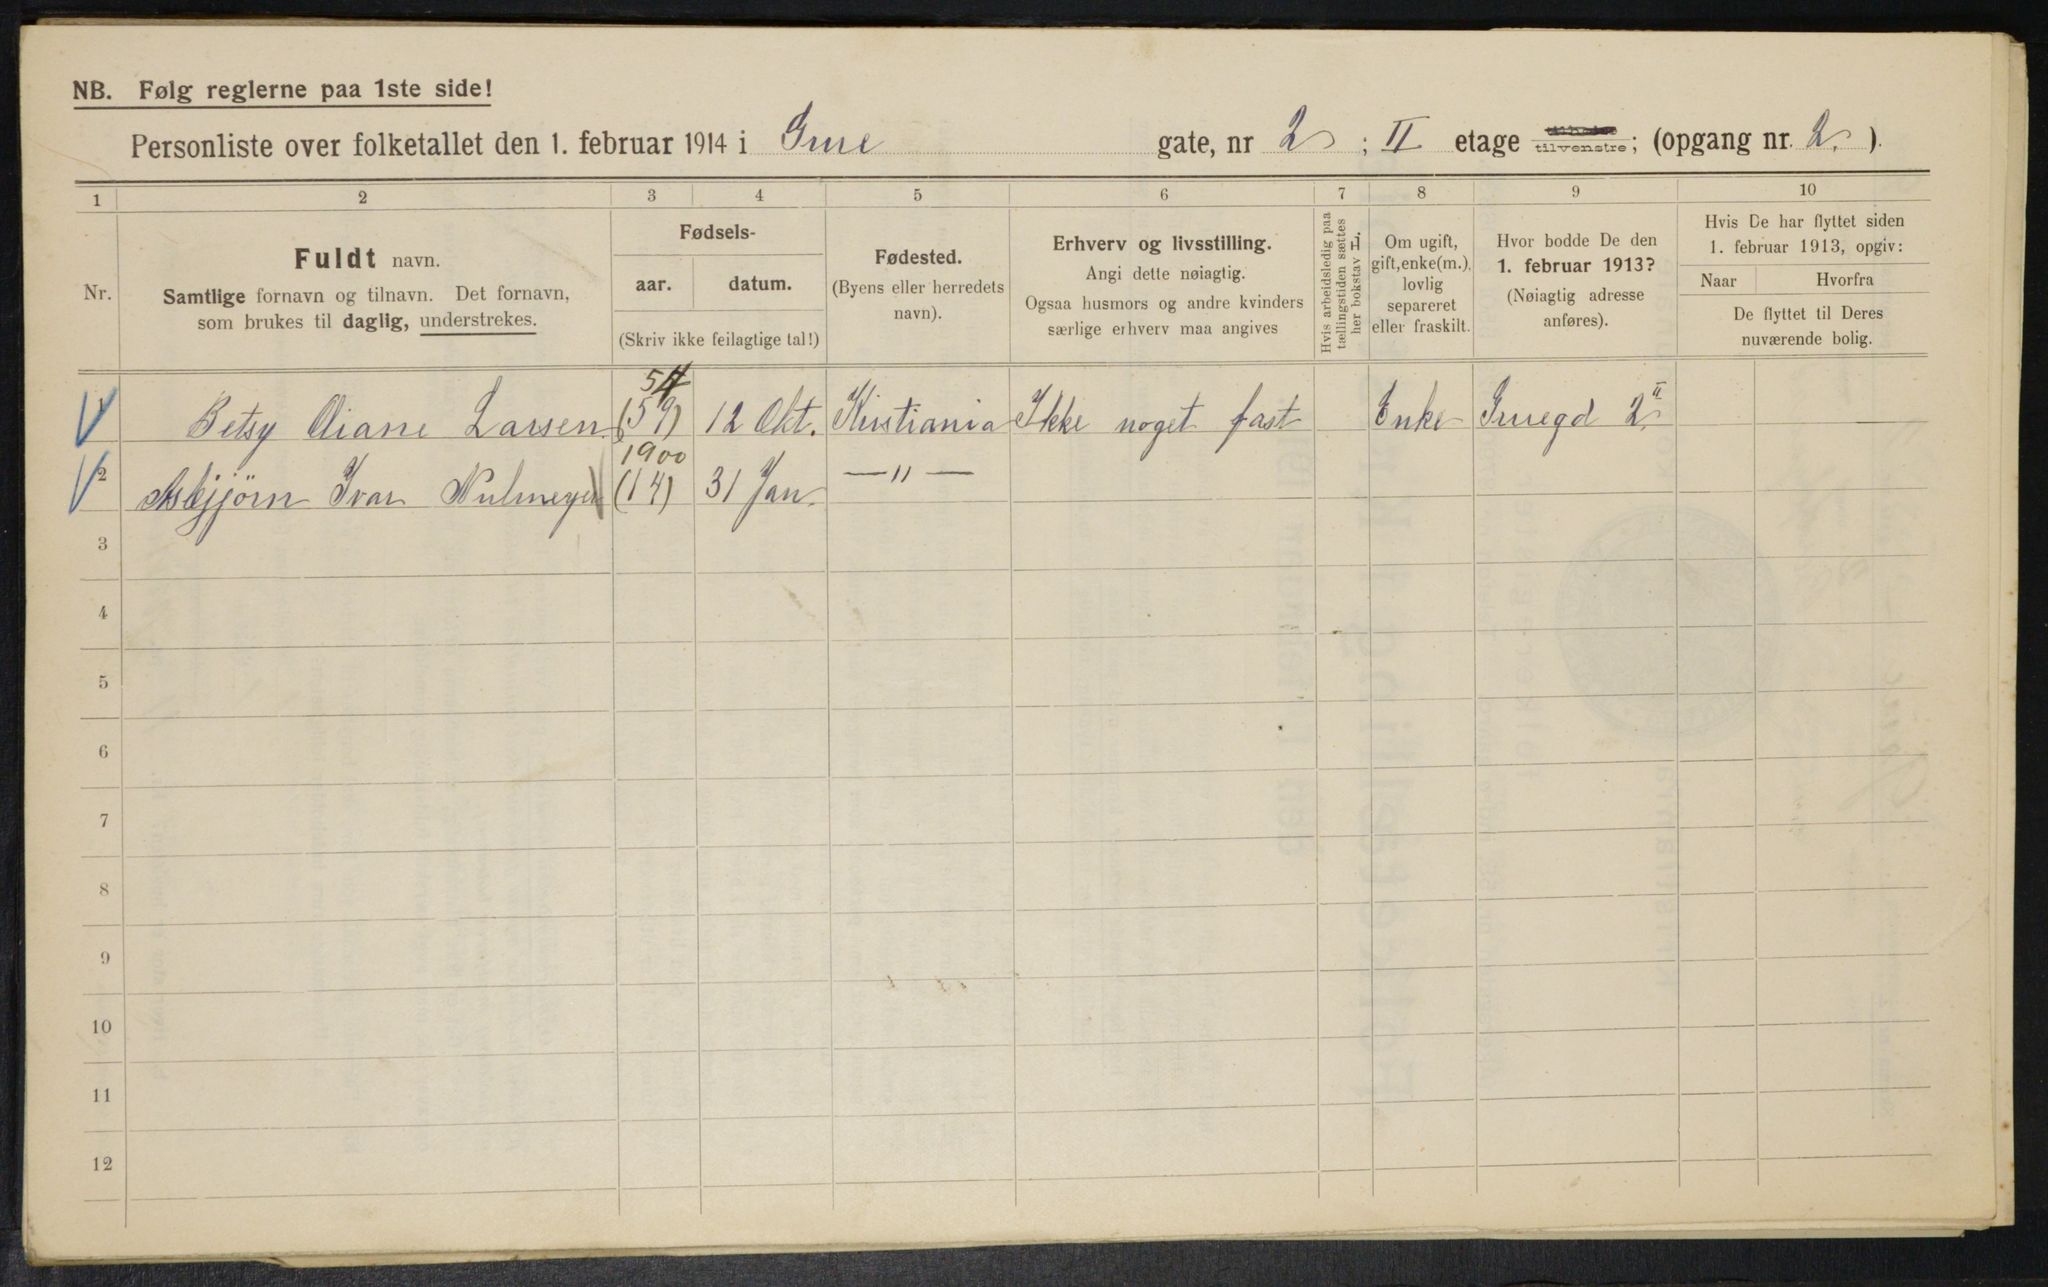 NB. Følg reglerne paa 1ste side!
Personliste over folketallet den 1. februar 1914 i Grue gate, nr 2 ; II etage tilvenstre; (opgang nr. 2. ).
1 2 3 4 5 6 7 8 9 10
Nr.
Fuldt navn.
Samtlige fornavn og tilnavn. Det fornavn,
som brukes til daglig, understrekes.
Fødsels-
aar. datum.
(Skriv ikke feilagtige tal!)
Fødested.
(Byens eller herredets
navn).
Erhverv og livsstilling.
Angi dette nøiagtig.
Ogsaa husmors og andre kvinders
særlige erhverv maa angives
Hvis arbeidsledig paa
tællingstiden sættes
her bokstav L.
Om ugift,
gift, enke(m.),
lovlig
separeret
eller fraskilt.
Hvor bodde De den
1. februar 1913?
(Nøiagtig adresse
anføres).
Hvis De har flyttet siden
1. februar 1913, opgiv:
Naar Hvorfra
De flyttet til Deres
nuværende bolig.
54
1 Betsy Oliane Larsen (59) 12 Okt. Kristiania Ikke noget fast Enke Gruegd 2 II
1900
2 Asbjørn Ivar (14) 31 Jan. —"—
3
4
5
6
7
8
9
10
11
12